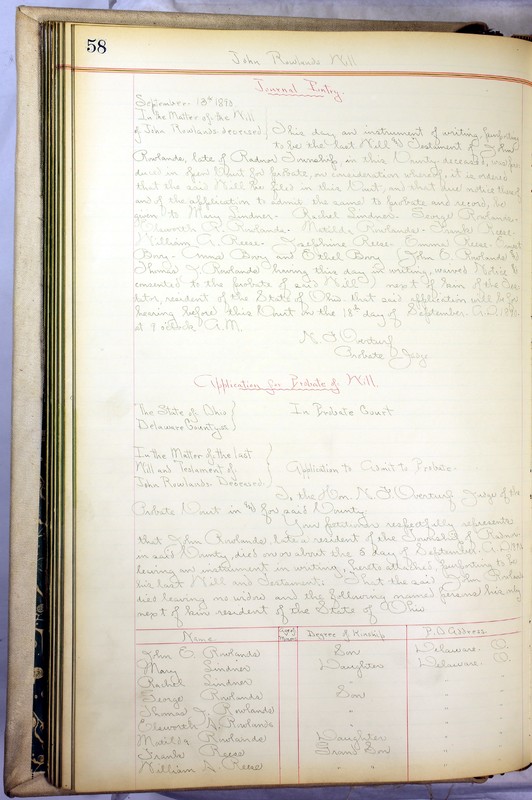 58
John Rowlands Will
Journal Entry.
September 13th 1890.
In the Matter of the Will
of John Rowlands deceased
This day an instrument of writing, purporting
to be the last Will & Testament of John
Rowlands, late of Radnor Township, in this County deceased, was pro
duced in open Court for probate, on consideration whereof, it is ordered
that the said Will be filed in this Court, and that due notice thereof
and of the application to admit the same to probate and record, be
given to Mary Lindner. Rachel Lindner. George Rowlands.
Elsworth A. Rowlands. Matilda Rowlands. Frank Reese.
William A. Reese. Josephine Reese. Emma Reese.
Emma and Ethel (John E. Rowlands &
Thomas J. Rowlands having this day in writing, waived Notice &
consented to the probate of said Will) next of kin of the Tes
tator, resident of the State of Ohio. that said application will be for
hearing before this Court on the 18th day of September. A.D. 1890.
at 9 o'clock A.M.
N. F. Overturf
Probate Judge
Application for Probate of Will
The State of Ohio
Delaware County ss
In Probate Court
In the Matter of the last
Will and Testament of
John Rowlands Deceased
Application to Admit to Probate.
To the Hon. N. F. Overturf Judge of the
Probate Court in & for said County.
Your petitioner respectfully represents
that John Rowlands, late a resident of the Township of Radnor
in said County, died on or about the 5 day of September. A.D. 1890
leaving an instrument in writing, hereto attached, purporting to be
his last Will and Testament. That the said John Rowlands
died leaving no widow and the following named persons his only
next of kin resident of the State of Ohio
Name Degree of Kinship P.O. Address
John E. Rowlands Son Delaware O.
Mary Lindner Daughter Delaware O.
Rachel Lindner " "
George Rowlands Son "
Thomas J. Rowlands " "
Elsworth A. Rowlands " "
Matilda Rowlands Daughter "
Frank Reese Grand Son "
William A. Reese " " "